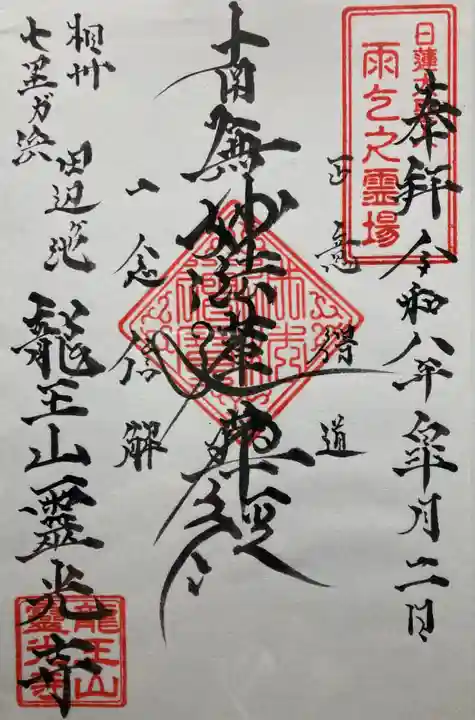 奉拝 令和八年皐月二日
日蓮大聖人
雨乞之霊場
正意得道
南無妙法蓮華経
一念信解
相州
七里ガ浜
田辺ヶ池
龍王山霊光寺
龍王山
霊光寺